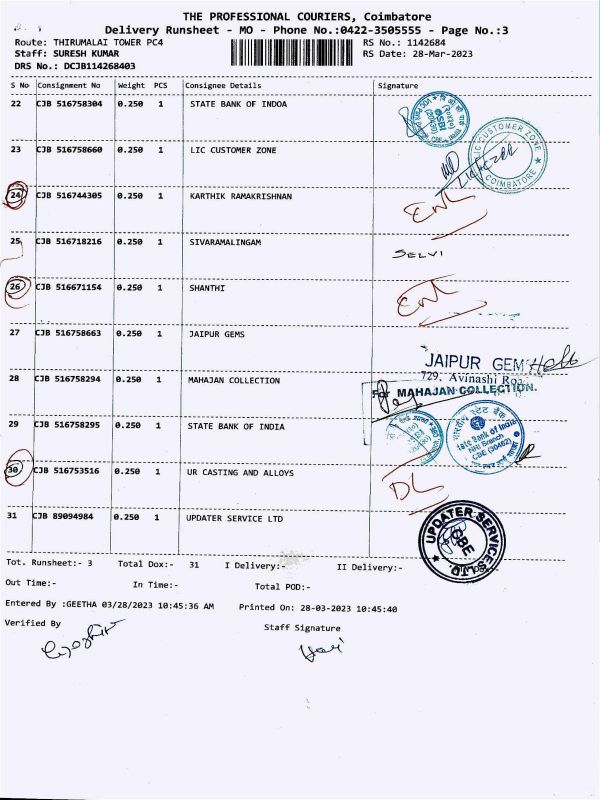 THE PROFESSIONAL COURIERS, Coimbatore
Delivery Runsheet - MO - Phone No.:0422-3505555 - Page No.:3
Route: THIRUMALAI TOWER PC4 RS No.: 1142684
Staff: SURESH KUMAR RS Date: 28-Mar-2023
DRS No.: DCJB114268403
S No Consignment No Weight PCS Consignee Details Signature
22 CJB 516758304 0.250 1 STATE BANK OF INDOA
SBI
23 CJB 516758660 0.250 1 LIC CUSTOMER ZONE
LIC CUSTOMER ZONE
COIMBATORE
24 CJB 516744305 0.250 1 KARTHIK RAMAKRISHNAN
25 CJB 516718216 0.250 1 SIVARAMALINGAM SELVI
26 CJB 516671154 0.250 1 SHANTHI
27 CJB 516758663 0.250 1 JAIPUR GEMS
JAIPUR GEM
729, Avinashi Roa
28 CJB 516758294 0.250 1 MAHAJAN COLLECTION
For MAHAJAN COLLECTION.
29 CJB 516758295 0.250 1 STATE BANK OF INDIA
भारतीय स्टेट बैंक
State Bank of India
NRI Branch
CBE (30482)
30 CJB 516753516 0.250 1 UR CASTING AND ALLOYS DL
31 CJB 89094984 0.250 1 UPDATER SERVICE LTD
UPDATER SERVICES LTD.
CBE
Tot. Runsheet:- 3 Total Dox:- 31 I Delivery:- II Delivery:-
Out Time:- In Time:- Total POD:-
Entered By :GEETHA 03/28/2023 10:45:36 AM Printed On: 28-03-2023 10:45:40
Verified By Staff Signature